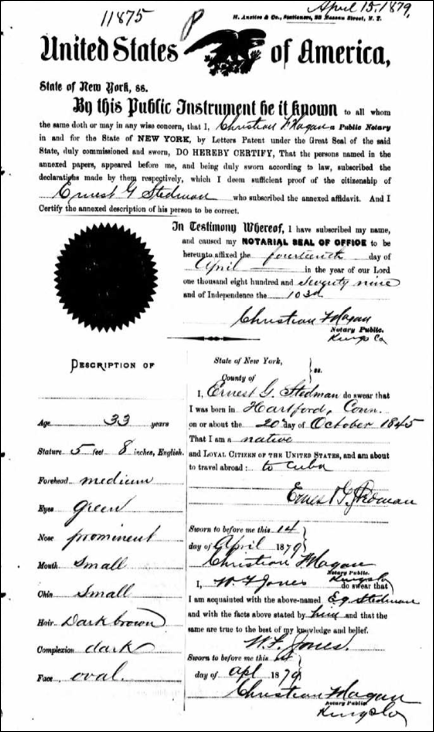 11875
April 15. 1879,
M. Austice & Co., Stationers, 23 Nassau Street, N. Y.
United States of America,
State of New York, ss.
By this Public Instrument be it known to all whom
the same doth or may in any wise concern, that I, Christian F Magan a Public Notary
in and for the State of NEW YORK, by Letters Patent under the Great Seal of the said
State, duly commissioned and sworn, DO HEREBY CERTIFY, That the persons named in the
annexed papers, appeared before me, and being duly sworn according to law, subscribed the
declarations made by them respectively, which I deem sufficient proof of the citizenship of
Ernest G Stedman who subscribed the annexed affidavit. And I
Certify the annexed description of his person to be correct.
In Testimony Whereof, I have subscribed my name,
and caused my NOTARIAL SEAL OF OFFICE to be
hereunto affixed the fourteenth day of
April in the year of our Lord
one thousand eight hundred and seventy nine
and of Independence the 103d
Christian F Magan
Notary Public.
Kings Co
DESCRIPTION OF
Age 33 years
Stature 5 feet 8 inches, English.
Forehead medium
Eyes green
Nose prominent
Mouth Small
Chin Small
Hair Dark brown
Complexion dark
Face oval.
State of New York,
County of } ss.
I, Ernest G. Stedman do swear that
I was born in Hartford, Conn.
on or about the 20th day of October 1845
That I am a native
and LOYAL CITIZEN OF THE UNITED STATES, and am about
to travel abroad: to Cuba
Ernest G. Stedman
Sworn to before me this 14
day of April 1879
Christian F Magan
Notary Public.
Kings Co
I, W F Jones do swear that
I am acquainted with the above-named E. G. Stedman
and with the facts above stated by him and that the
same are true to the best of my knowledge and belief.
W. F. Jones.
Sworn to before me this 14
day of apl 1879
Christian F Magan
Kings Co